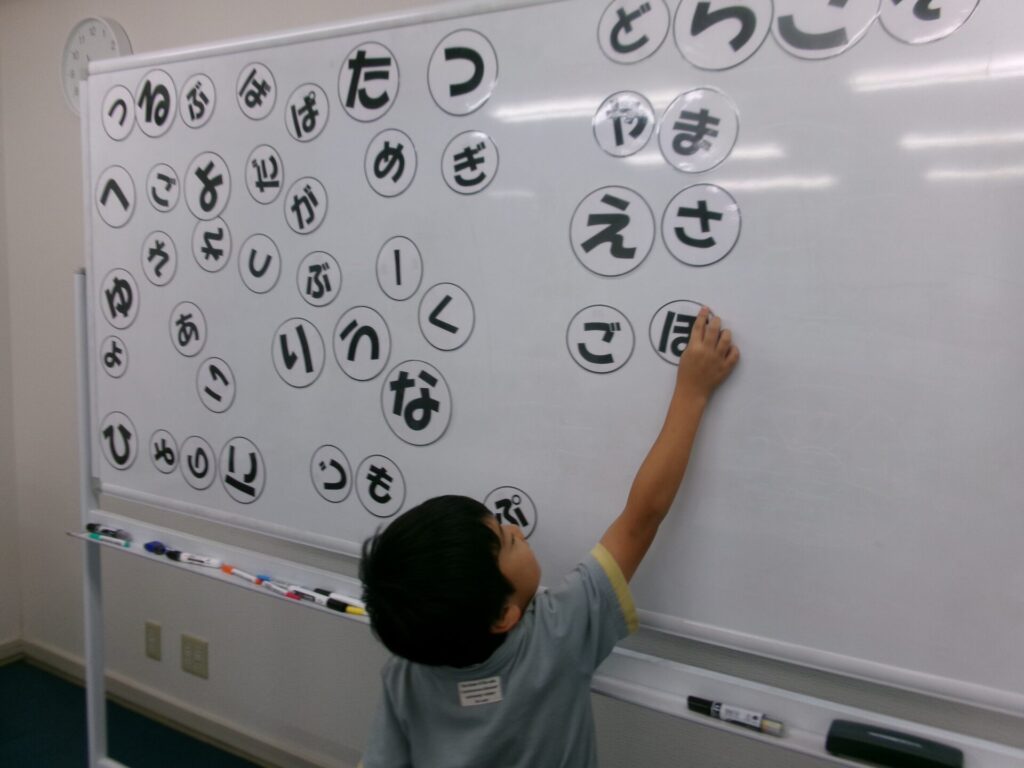 どらご
やま
えさ
ごほ
つるぶほぱたつ
へごよだがめぎ
さましぶーく
ゆあいりうな
よこ
ひゃのにつもぷ